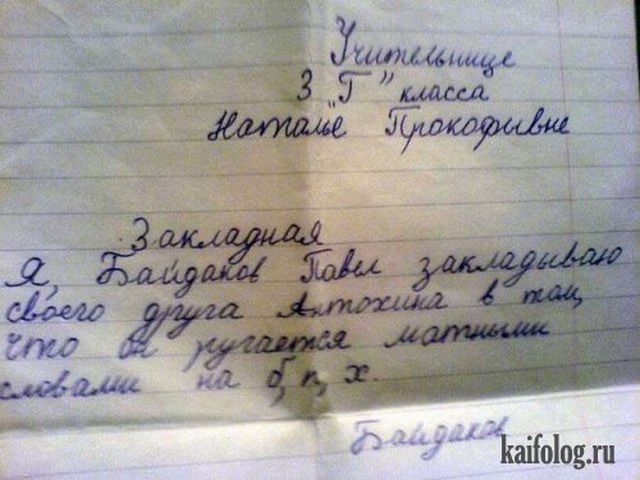 Учительнице
3 "Г" класса
Наталье Прокофывне
Закладная
Я, Байдаков Павел закладываю
своего друга Антохина в том,
что он ругается матными
словами на б, п, х.
Байдаков
kaifolog.ru